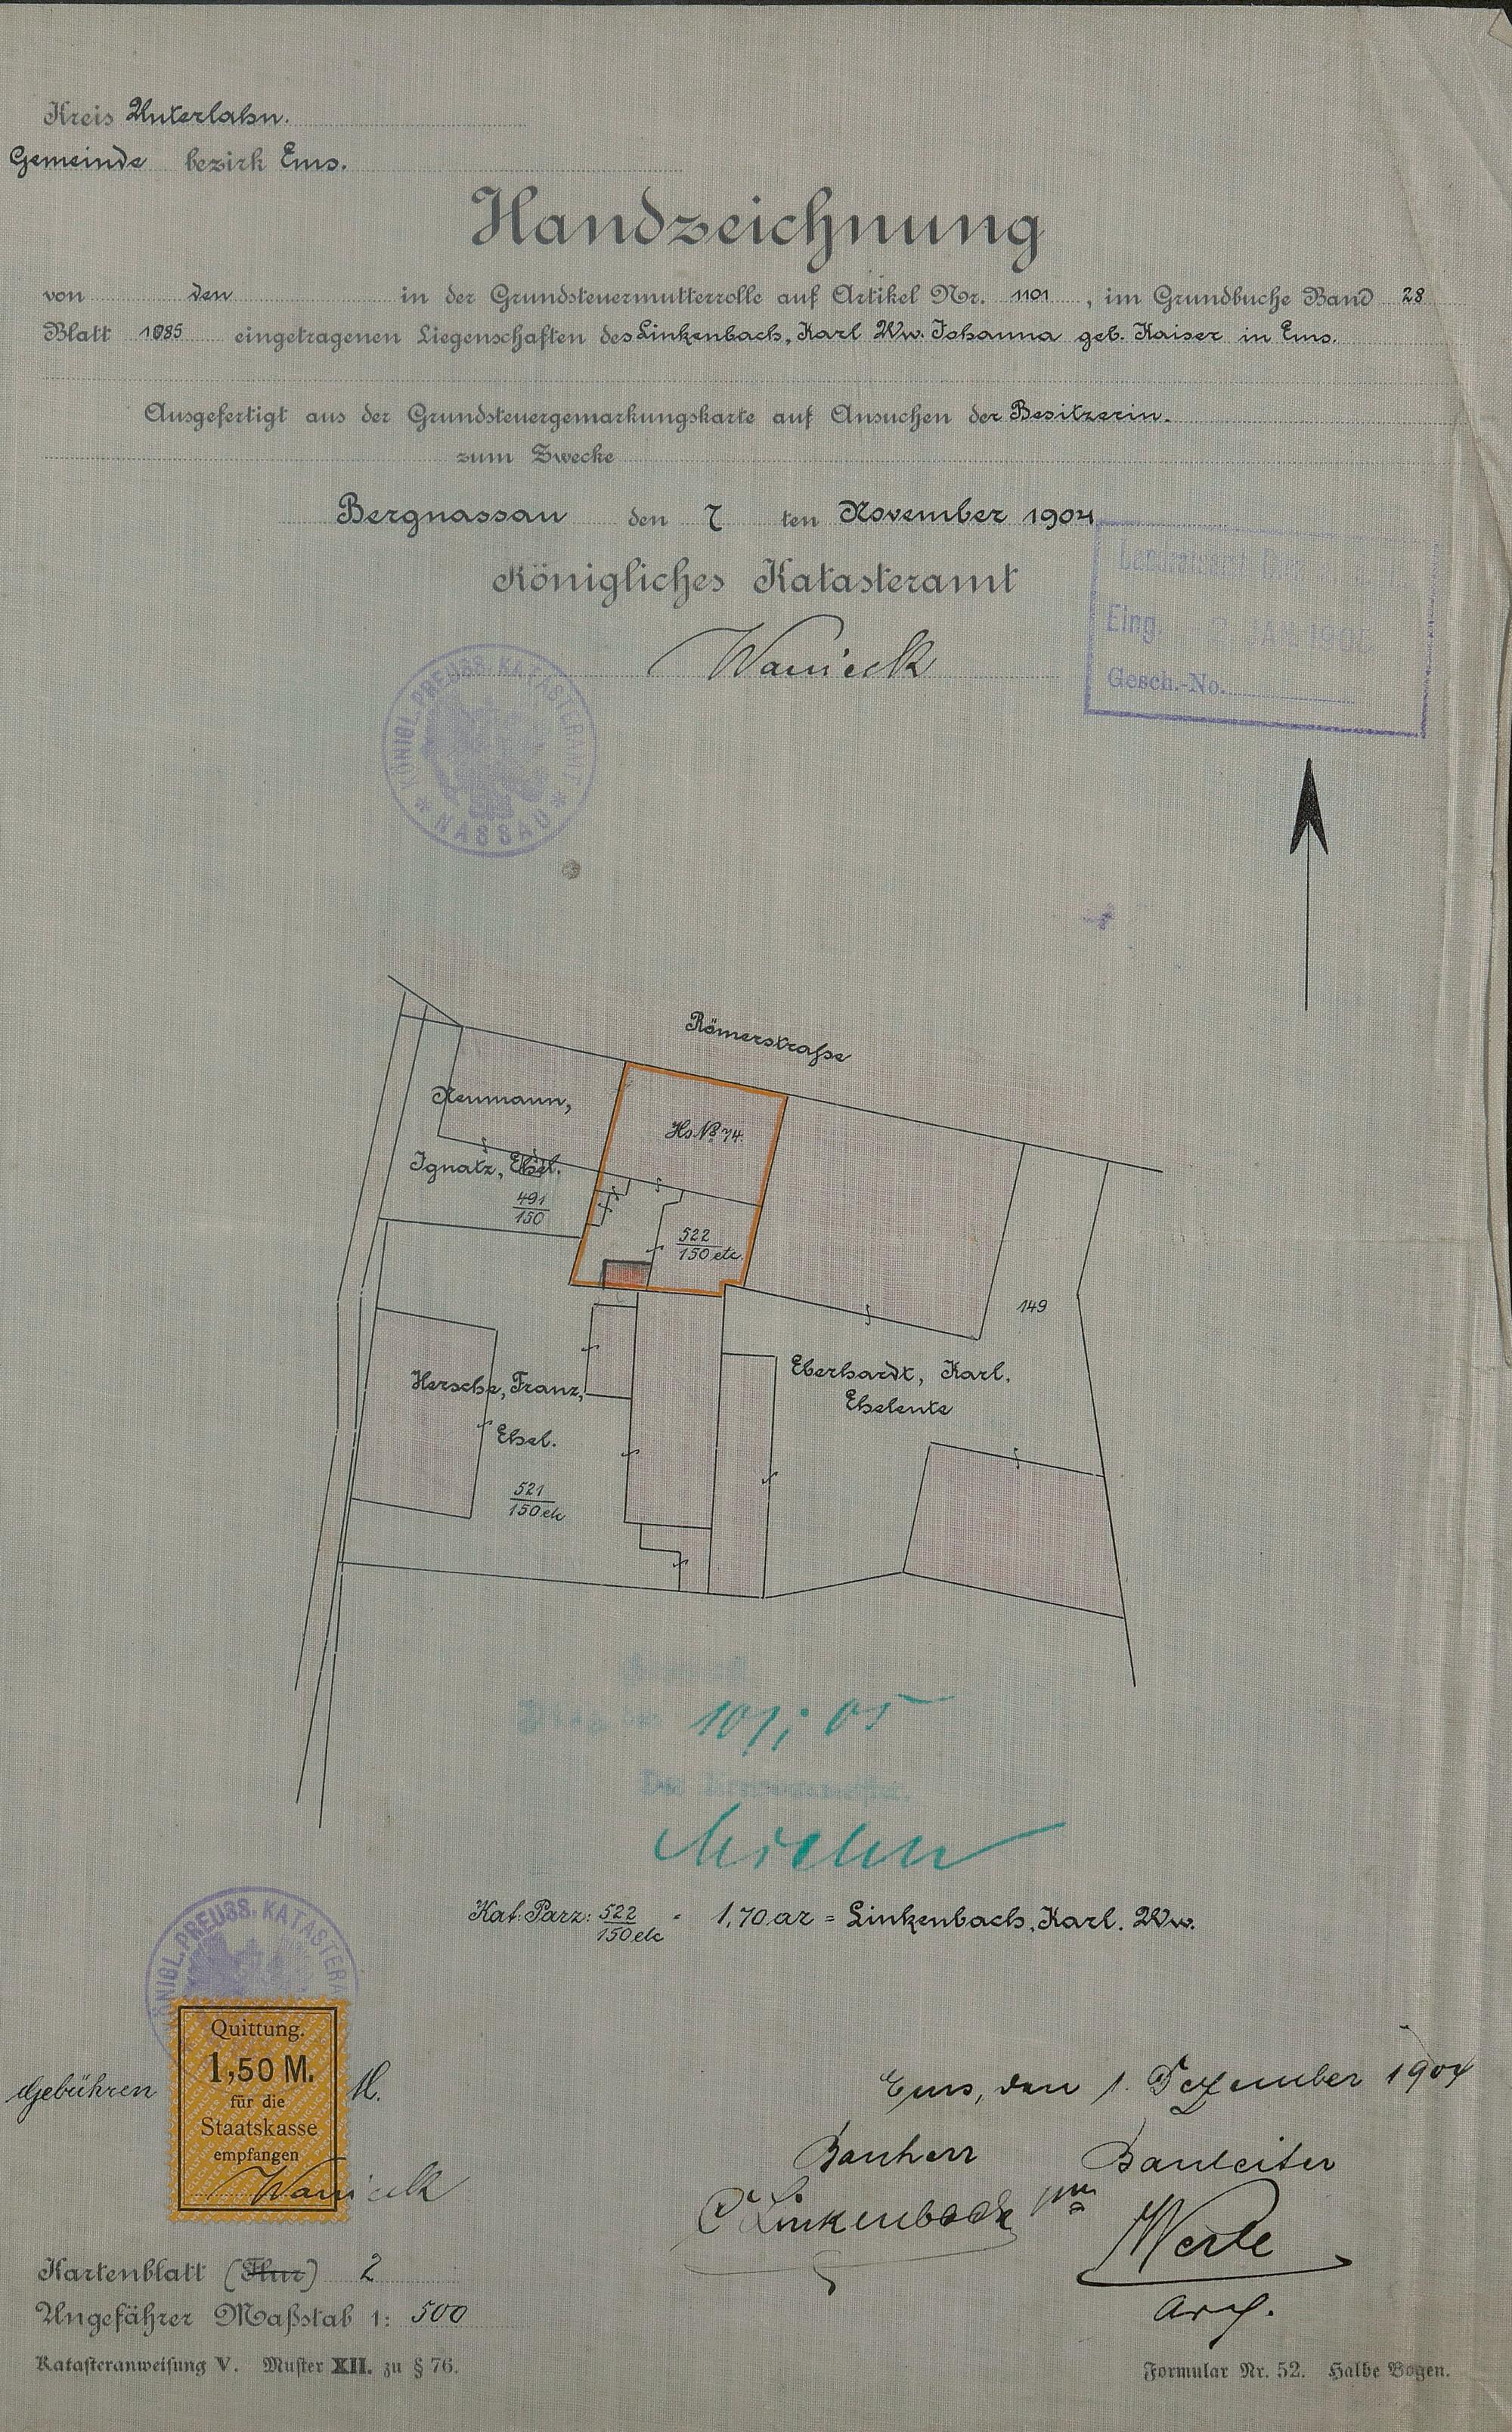 Kreis Unterlahn.
Gemeinde bezirk Ems.
Handzeichnung
von den in der Grundsteuermutterrolle auf Artikel Nr. 1101, im Grundbuche Band 28
Blatt 1085 eingetragenen Liegenschaften des Linkenbach, Karl Ww. Johanna geb. Kaiser in Ems.
Ausgefertigt aus der Grundsteuergemarkungskarte auf Ansuchen der Besitzerin.
zum Zwecke
Bergnassau den 7 ten November 1904
Königliches Katasteramt
Wanieck
KÖNIGL. PREUSS. KATASTERAMT
* NASSAU *
Landratsamt
Eing. 2 JAN. 1905
Gesch.-No.
Römerstraße
Neumann,
Hs № 74.
Ignatz, Ehel.
491
150
522
150 etc.
149
Hersche, Franz,
Ehel.
Eberhardt, Karl.
Eheleute
521
150 etc
05
Kat: Parz: 522 / 150 etc = 1,70 ar = Linkenbach, Karl. Ww.
KÖNIGL. PREUSS. KATASTERA
Quittung.
1,50 M.
für die
Staatskasse
empfangen
Gebühren M.
Wanieck
Ems, den 1. Dezember 1904
Bauherr Bauleiter
C Linkenbach
Werle
Arch.
Kartenblatt (Flur) 2
Ungefährer Maßstab 1: 500
Katasteranweisung V. Muster XII. zu § 76.
Formular Nr. 52. Halbe Bogen.